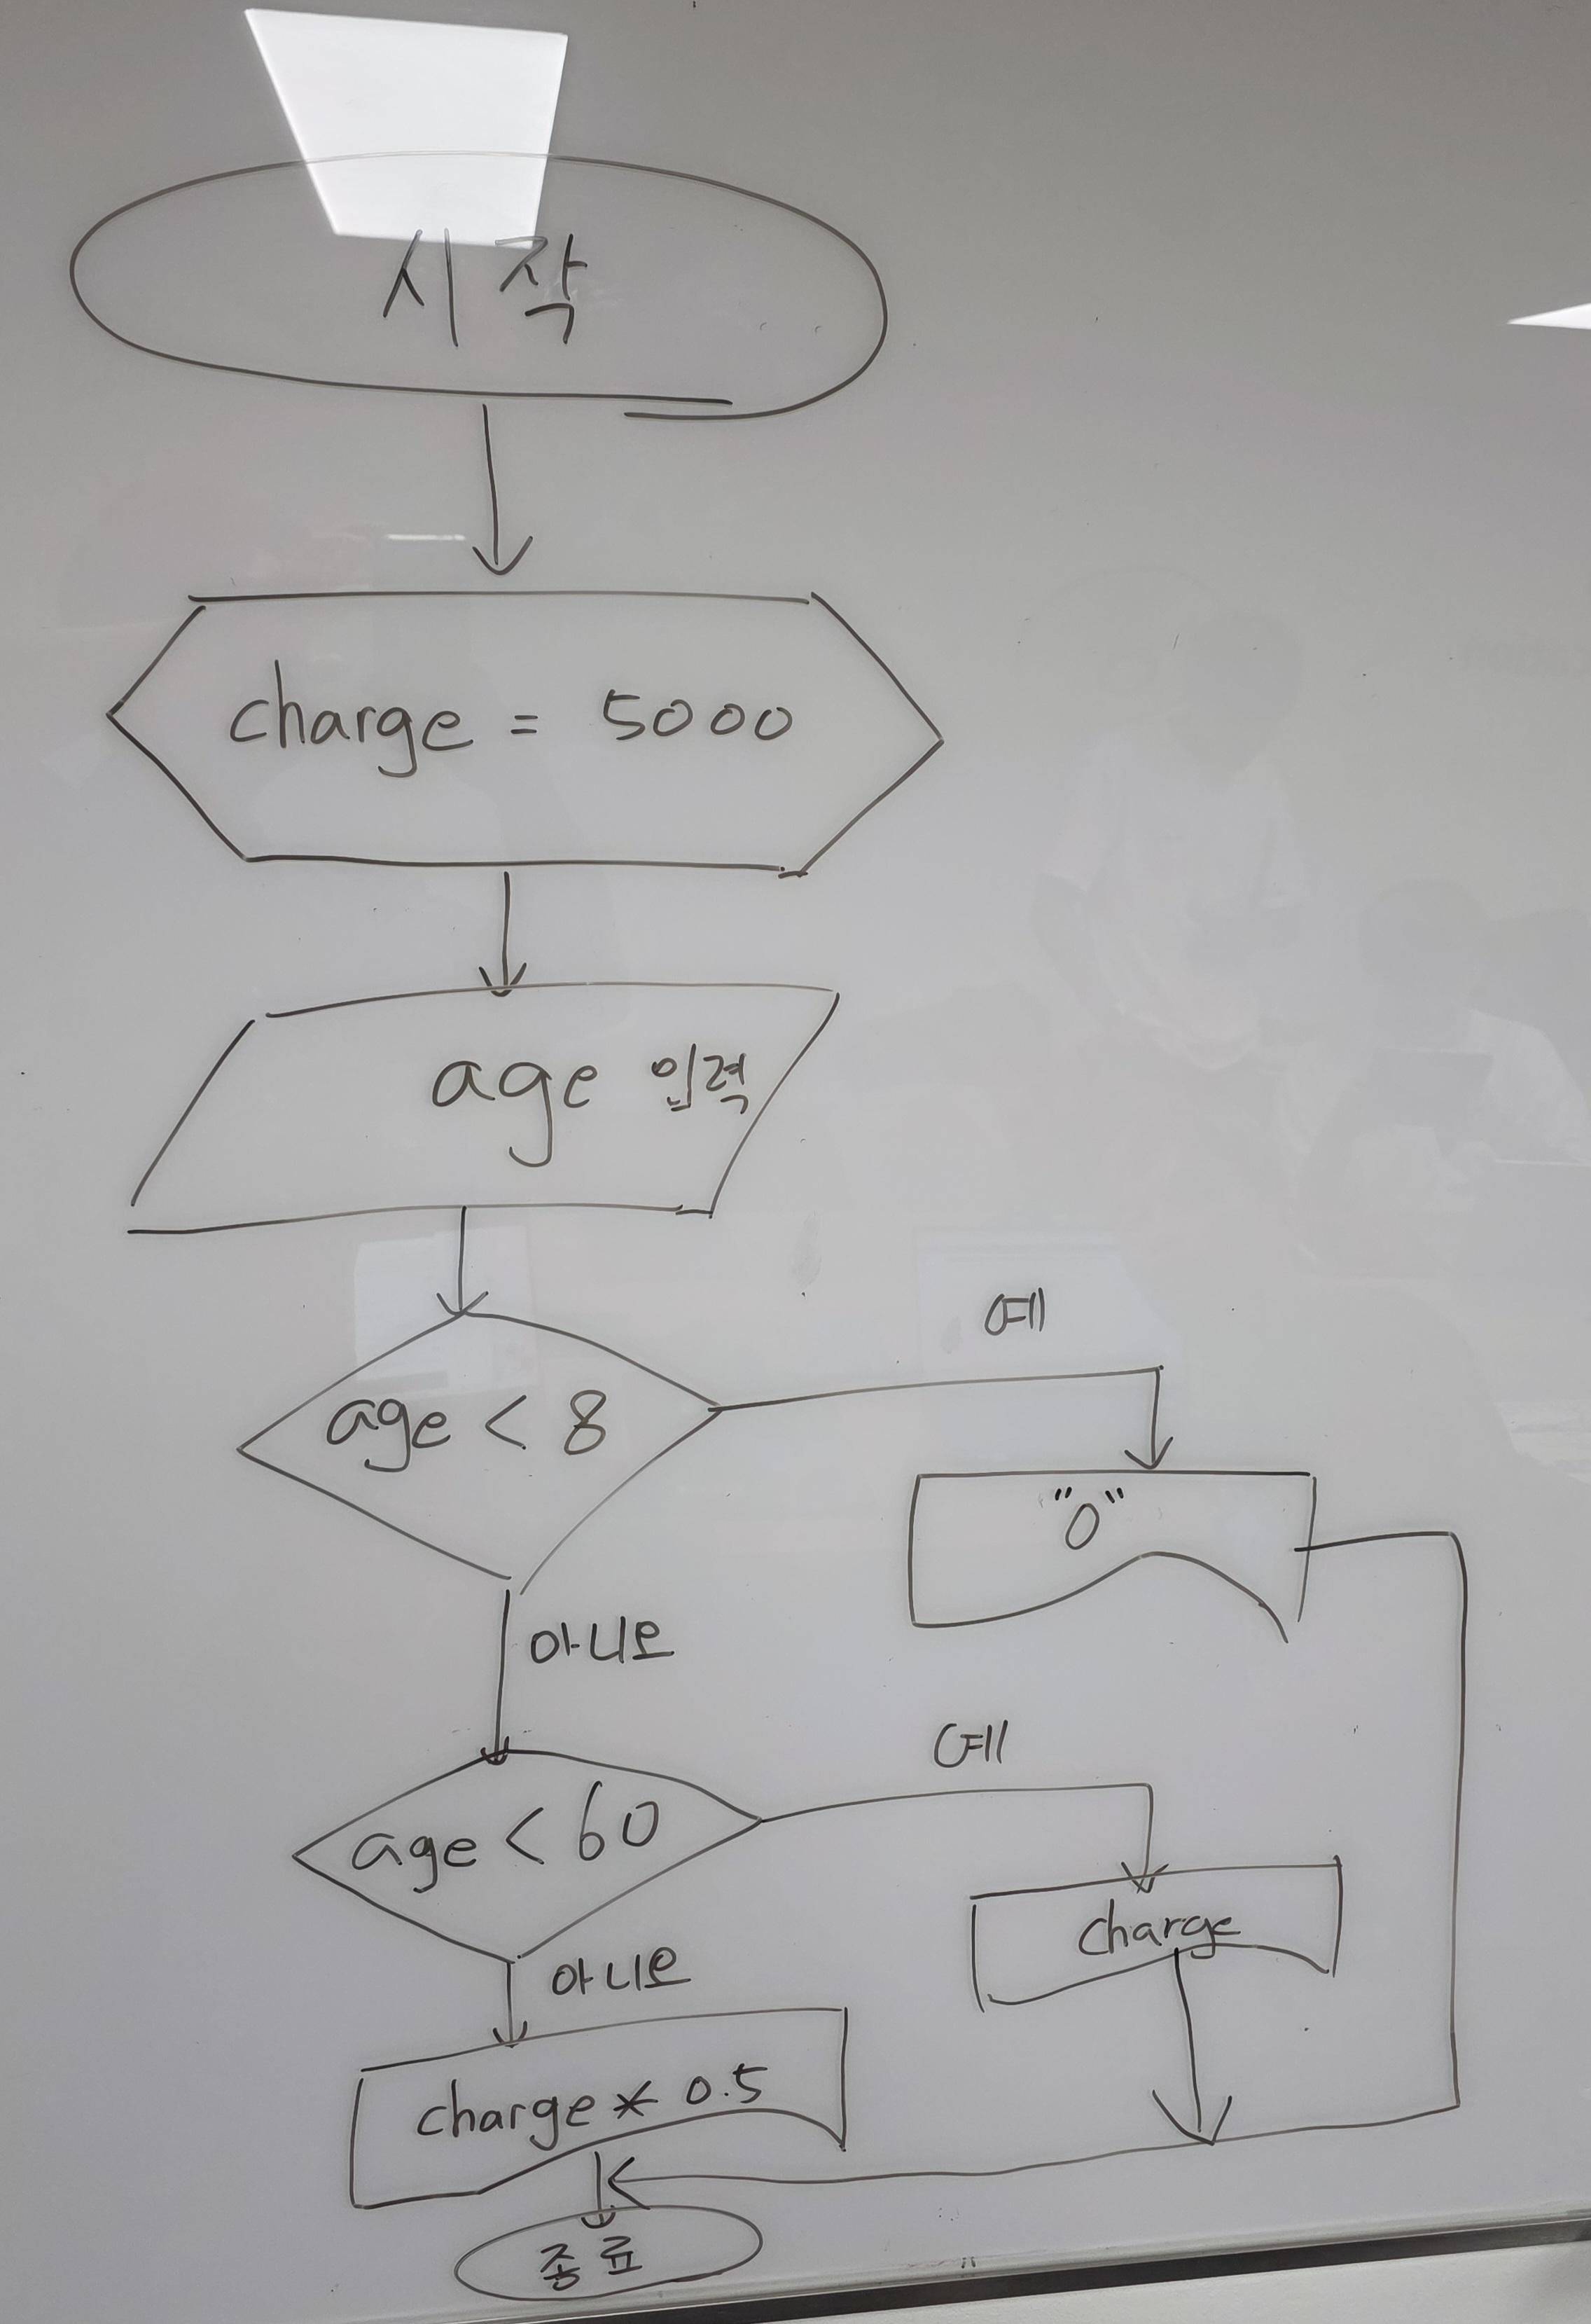 시작
charge = 5000
age 입력
age < 8
예
"0"
아니요
age < 60
예
charge
아니요
charge * 0.5
종료